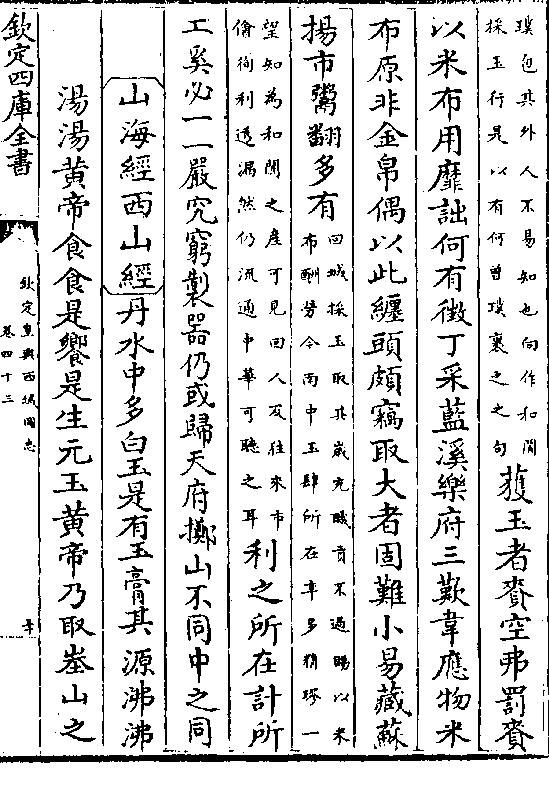 璞包其外人不易知也向作和闐
採玉行是以有何曾璞裹之之句
獲玉者賚空弗罰賚
以米布用靡詘何有徵丁采藍溪樂府三歎韋應物米
布原非金帛偶以此纏頭頗竊取大者固難小易藏蘇
揚市鬻翻多有
回城採玉取其歲充職貢不過賜以米
布酬勞今南中玉肆所在率多精璆一
望知為和闐之產可見回人及往來市
儈徇利透漏然仍流通中華可聽之耳
利之所在計所
工奚必一一嚴究窮製器仍或歸天府擲山不同中之同
山海經西山經丹水中多白玉是有玉膏其源沸沸
湯湯黄帝食食是饗是生元玉黄帝乃取峚山之
欽定四庫全書
欽定皇輿西域圖志
卷四十三